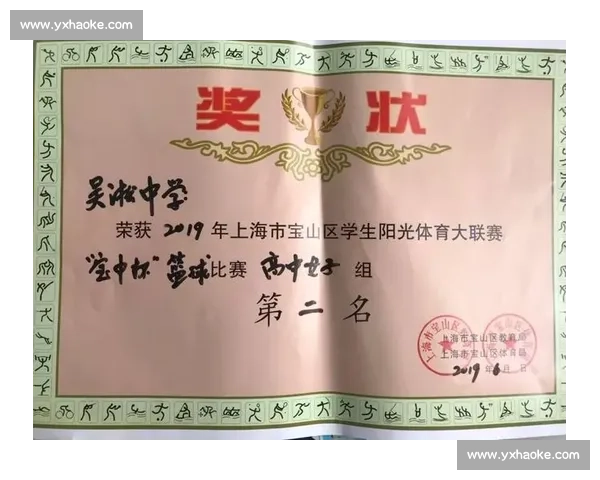 www.yxhaoke.com
奖状
吴淞中学
荣获 2019 年上海市宝山区学生阳光体育大联赛
"宝中杯"篮球比赛 高中女子 组
第二名
上海市宝山区教育局
上海市宝山区体育局
2019 年 6 月 日
www.yxhaoke.com